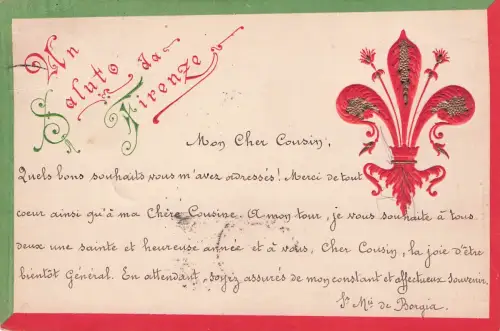 Un
Saluto da
Firenze
Mon Cher Cousin,
Quels bons souhaits vous m'avez adressés! Merci de tout
coeur ainsi qu'à ma Chère Cousine. A mon tour, je vous souhaite à tous
deux une sainte et heureuse année et à vous, Cher Cousin, la joie d'être
bientôt Général. En attendant, soyez assurés de mon constant et affectueux souvenir.
Sr Mie de Borgia.